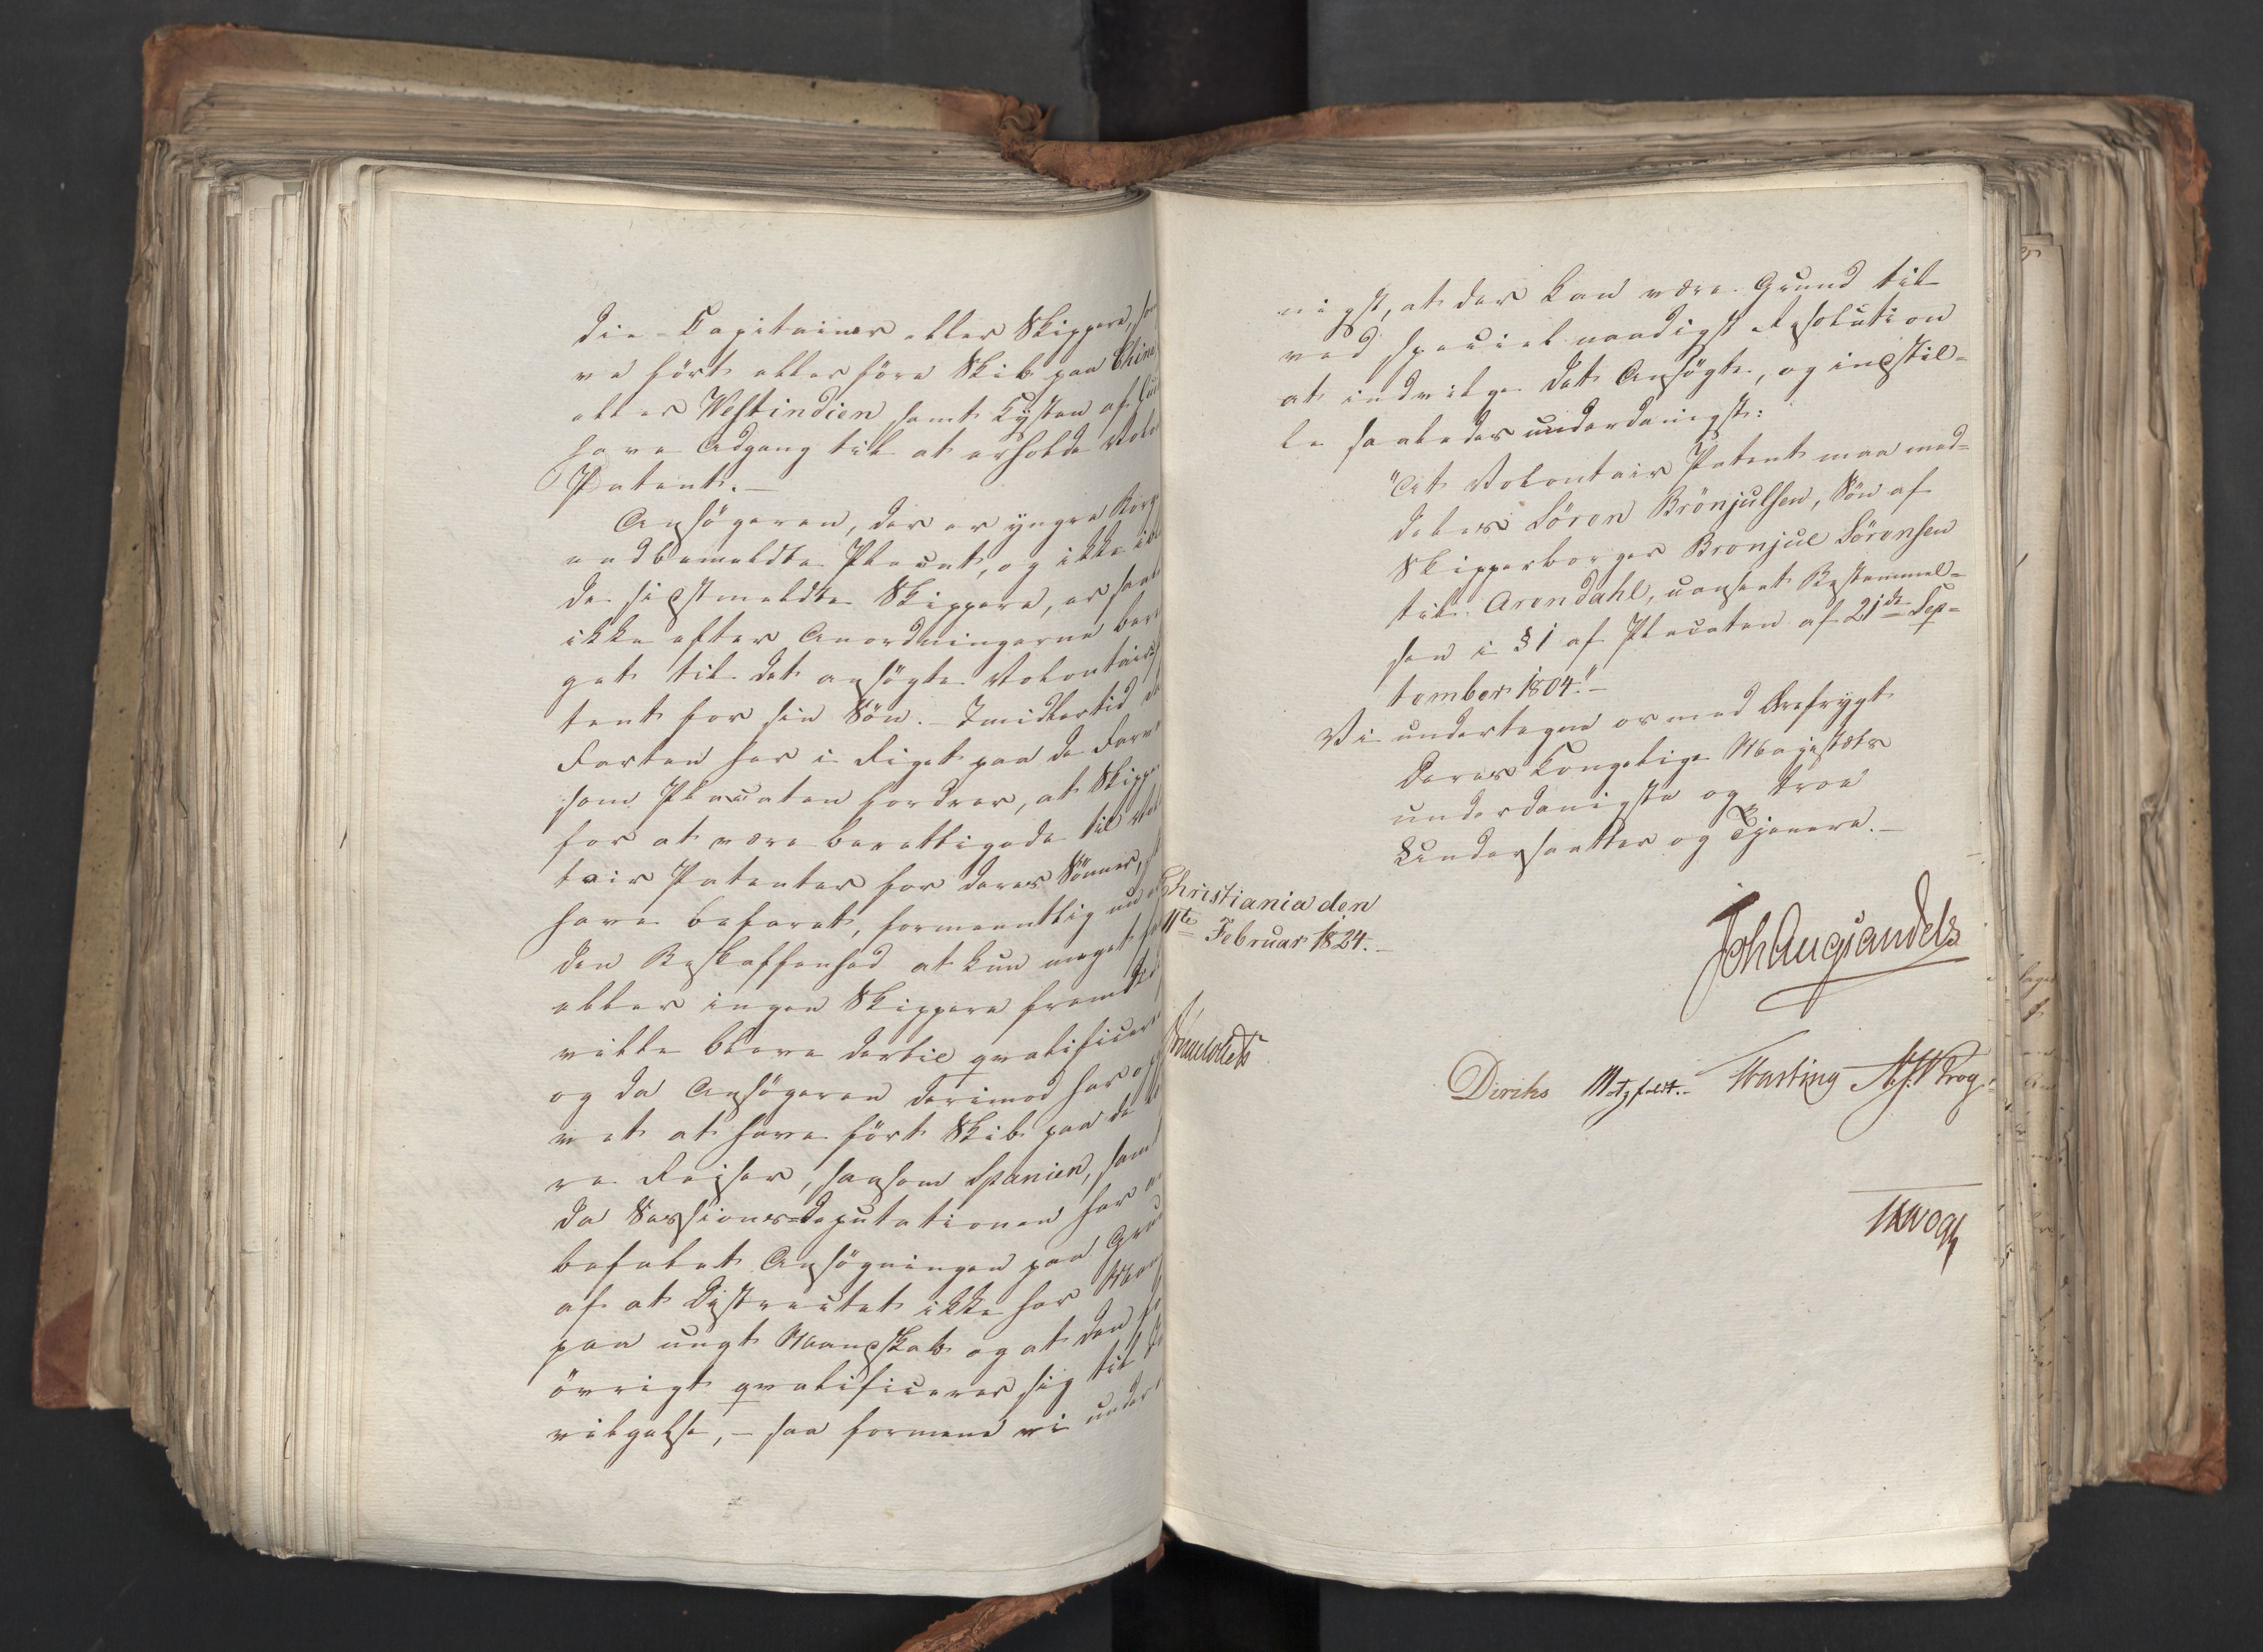 die Capitainer eller Skippere, som
ve ført eller føre Skib paa China
eller Westindien samt Kysten af Gui
have Adgang til at erholde Volo
Patent.—
Ansøgeren, der er yngre Borg
end bemeldte Placat, og ikke ibl
de sidstmeldte Skippere, er saal
ikke efter Anordningerne bere
get til det ansøgte Volontair P
tent for sin Søn. — Imidlertid da
Farten her i Riget paa de Farv
som Placaten fordrer, at Skippe
for at være berettigede til Vol
tair Patenter for deres Sønner,
have befaret, formeentlig nu er
den Beskaffenhed at kun meget
eller ingen Skippere fremdeel
ville blive dertil qvalificere
og da Ansøgeren derimod har op
vet at have ført Skib paa de
re Reiser, saasom Spanien, samt
da Sessions-Deputationen har an
befalet Ansøgningen paa Grund
af at Districtet ikke har Mang
paa ungt Mandskab og at den
øvrigt qvalificerer sig til
vilgelse, — saa formene vi under
nigst, at der kan være Grund til
ved speciel naadigst Resolution
at indvilge det Ansøgte, og indstil-
le saaledes underdanigst:
"At Volontair Patent maa med-
deles Søren Brønjulsen, Søn af
Skipperborger Bronjul Sørensen
til Arendahl, uanseet Bestemmel-
sen i § 1 af Placaten af 21de Sep-
tember 1804."—
Vi undertegne os med Ærefrygt
Deres Kongelige Majestæts
underdanigste og troe
Undersaatter og Tjenere.—
Christiania den
11te Februar 1824.—
Joh Aug Sandels
Sommerhielm
Diriks Motzfeldt. Fasting J. H. Krog
Vogt